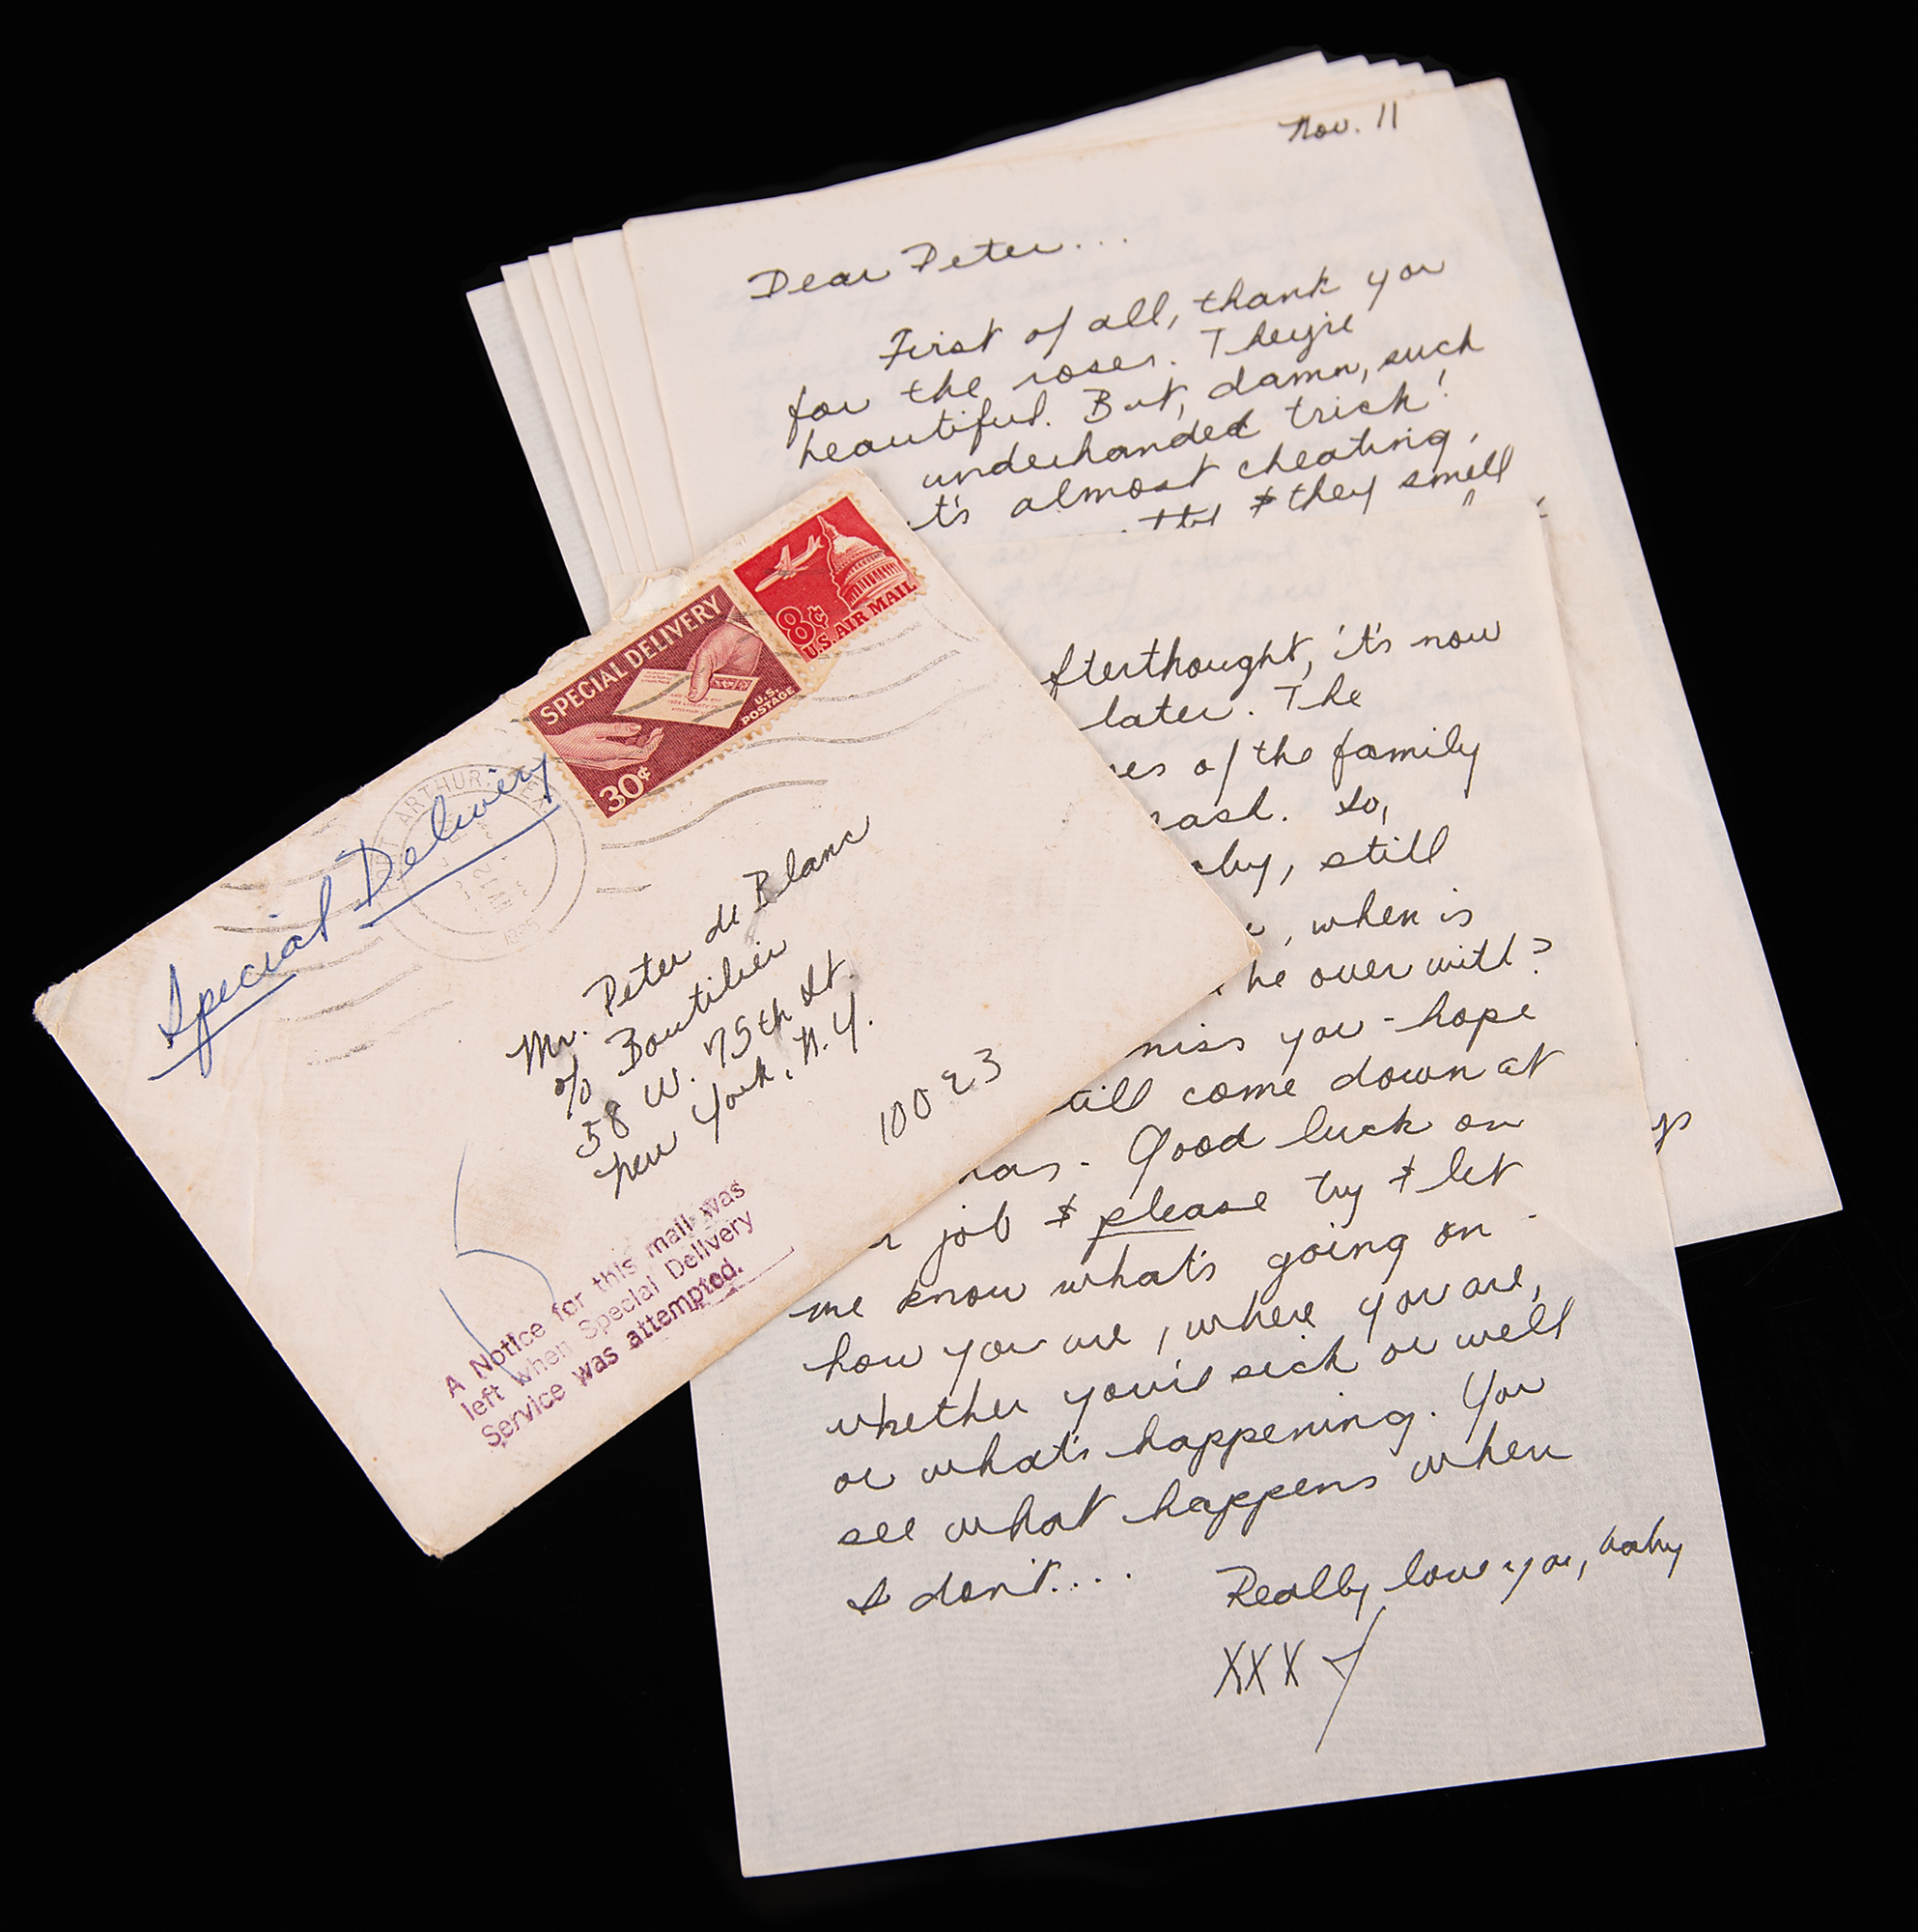 Nov. 11
Dear Peter...
First of all, thank you
for the roses. They're
beautiful. But, damn, such
underhanded trick!
t's almost cheating.
& they smell
fterthought, it's now
later. The
es of the family
ash. So,
, still
, when is
he over with?
miss you - hope
till come down at
as. Good luck on
job & please try & let
me know what's going on -
how you are, where you are,
whether you're sick or well
or what's happening. You
see what happens when
I don't....
Really love you, baby
XXX J
ys
SPECIAL DELIVERY
30¢
U.S. POSTAGE
8¢
U.S. AIR MAIL
ARTHUR, TEX
Special Delivery
Mr. Peter de Blanc
c/o Boutilier
58 W. 75th St.
New York, N.Y.
10023
A Notice for this mail was
left when Special Delivery
Service was attempted.